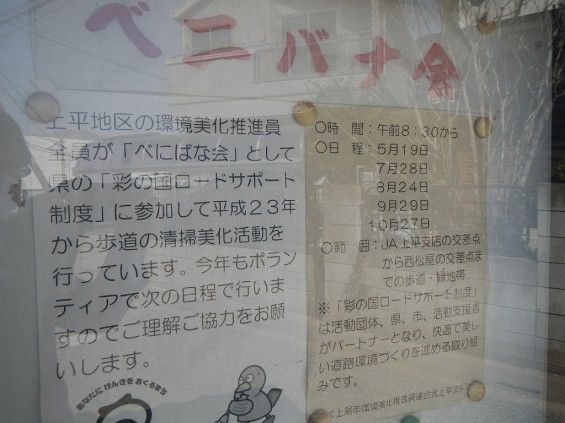 ベニバナ会
上平地区の環境美化推進員
全員が「べにばな会」として
県の「彩の国ロードサポート
制度」に参加して平成２３年
から歩道の清掃美化活動を
行っています。今年もボラン
ティアで次の日程で行いま
すのでご理解ご協力をお願
いします。
あなたに げんきを おくるまち
〇時　間：午前8：30から
〇日　程：5月19日
7月28日
8月24日
9月29日
10月27日
〇範　囲：JA上平支店の交差点
から西松屋の交差点ま
での歩道・緑地帯
※「彩の国ロードサポート制度」
は活動団体、県、市、活動支援者
がパートナーとなり、快適で美し
い道路環境づくりを進める取り組
みです。
上尾市環境美化推進員連合会上平支部